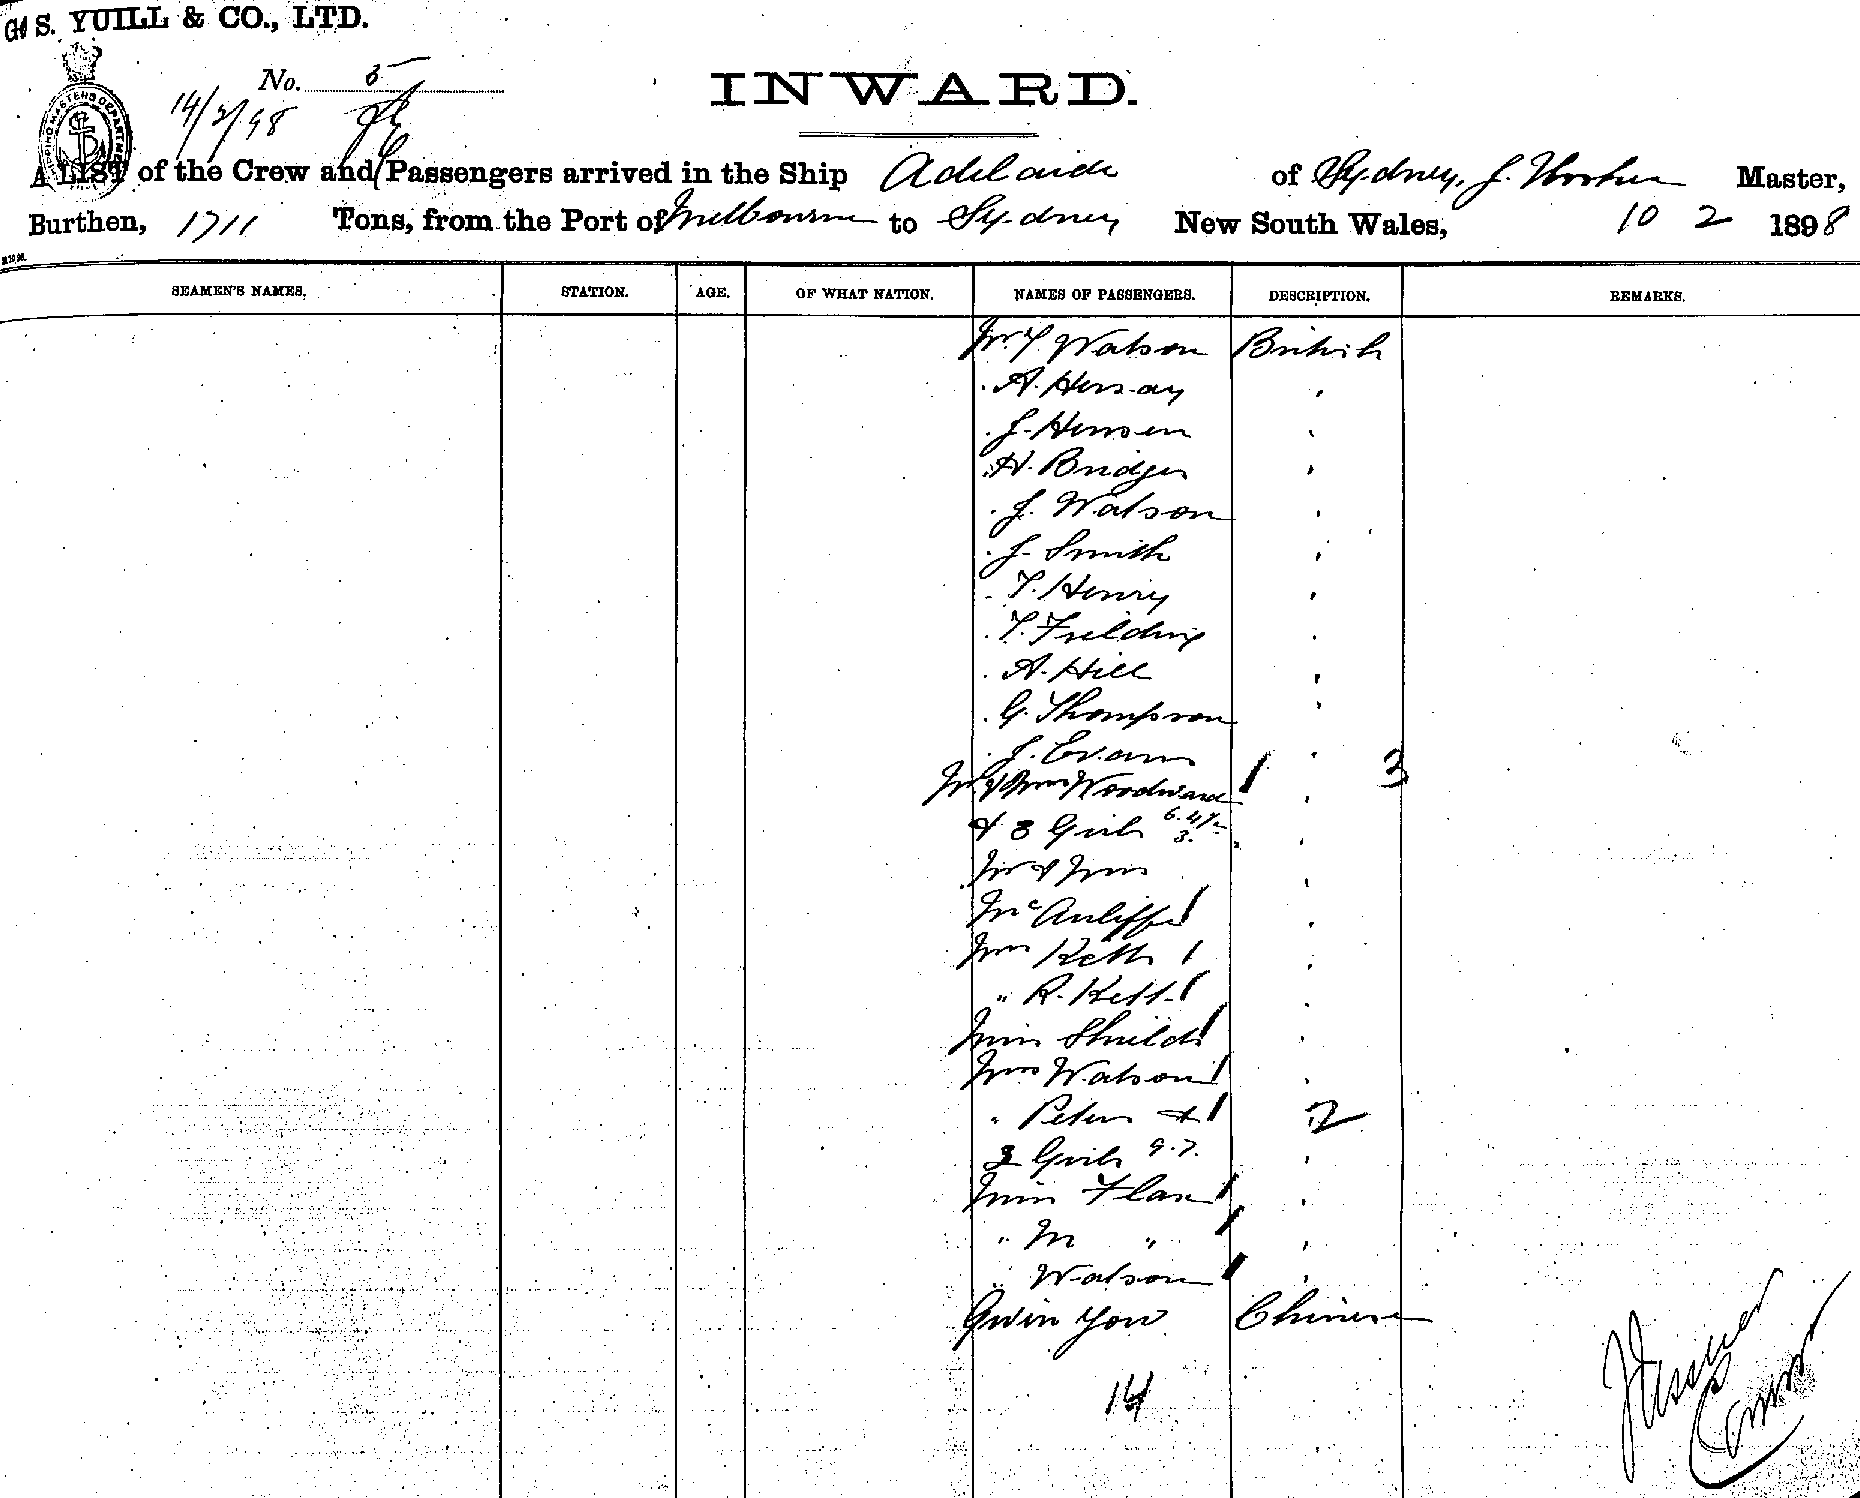 G. S. YUILL & CO., LTD.
No. 5
14/2/98
INWARD.
A LIST of the Crew and Passengers arrived in the Ship Adelaide of Sydney, J. Master,
Burthen, 1711 Tons, from the Port of Melbourne to Sydney New South Wales, 10 2 1898
SEAMEN'S NAMES. STATION. AGE. OF WHAT NATION. NAMES OF PASSENGERS. DESCRIPTION. REMARKS.
Mr. T. Watson British
. A. Hersay "
. J. Hensen "
. H. Bridges "
. J. Watson "
. J. Smith "
. T. Henry "
. T. Fielding "
. A. Hill "
. G. Thompson "
. J. Evans "
Mr & Mrs Woodward 1 " 3
& 3 Girls 6. 4½ 3. "
Mr & Mrs "
McAuliffe 1 "
Mrs Kett 1 "
" R. Kett 1 "
Miss Shields 1 "
Mrs Watson 1 "
" Peters & 1 2
2 Girls 9. 7. "
Miss Flan 1 "
" M " 1 "
" Watson 1 "
Gwin You Chinese
14